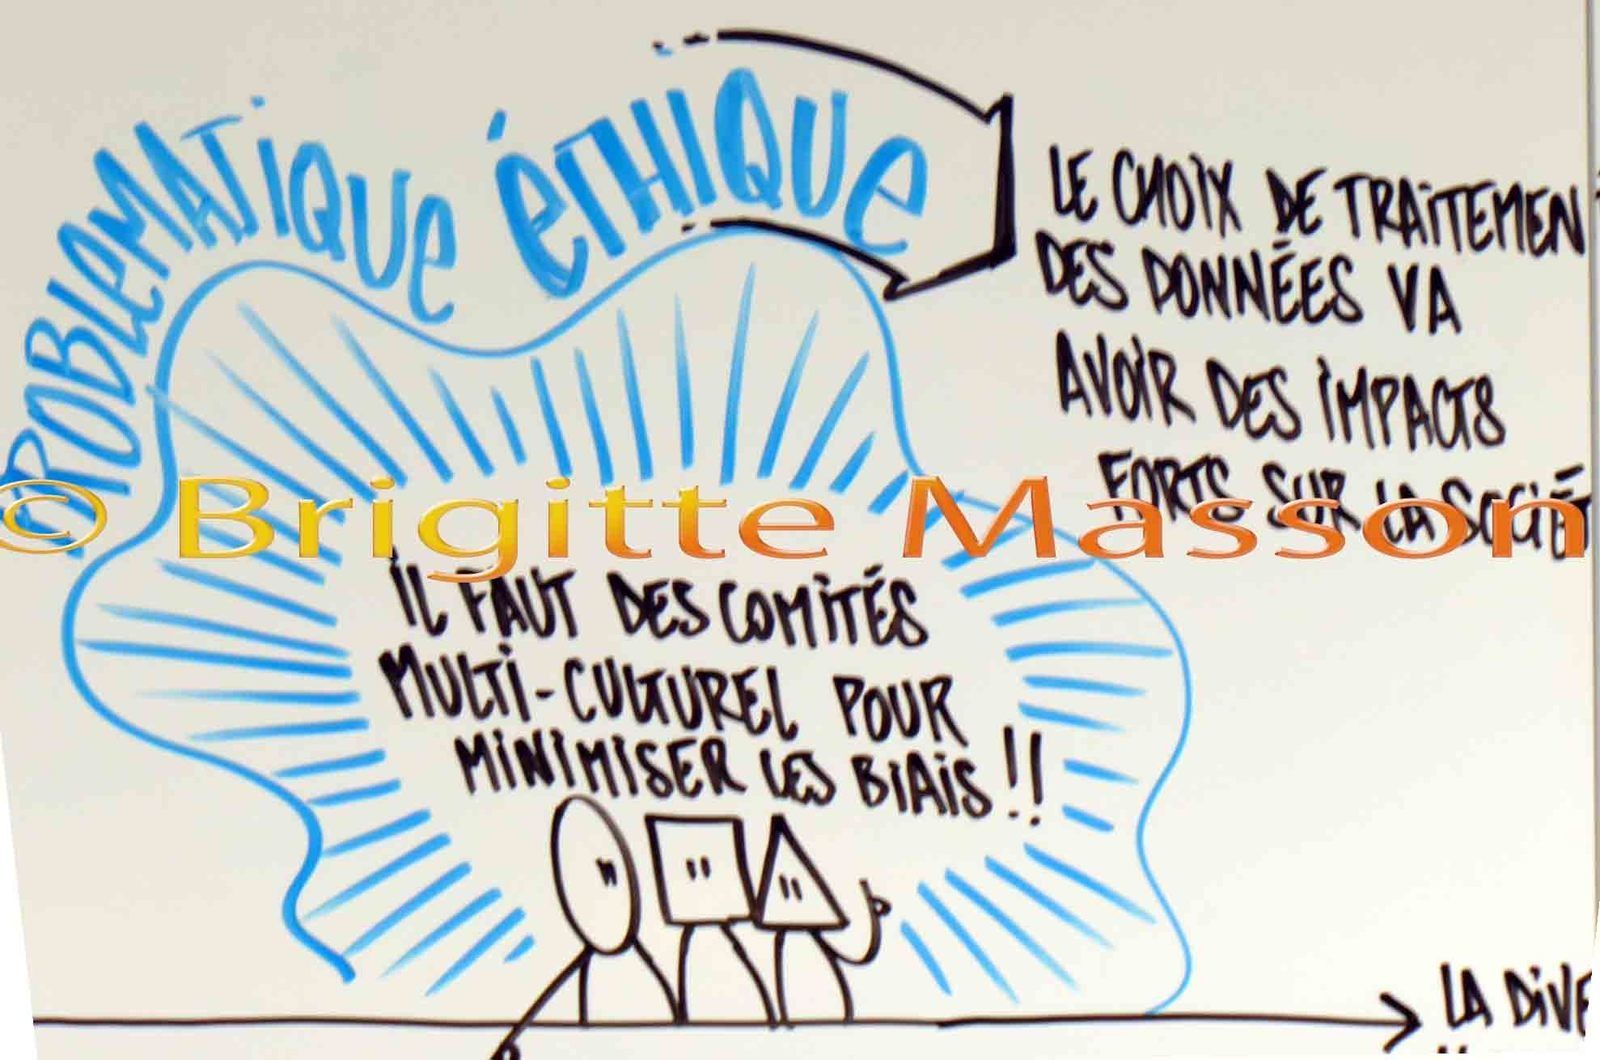 PROBLEMATIQUE ÉTHIQUE
LE CHOIX DE TRAITEMEN
DES DONNÉES VA
AVOIR DES IMPACTS
FORTS SUR LA SOCIÉT
© Brigitte Masson
IL FAUT DES COMITÉS
MULTI-CULTUREL POUR
MINIMISER LES BIAIS !!
LA DIVE